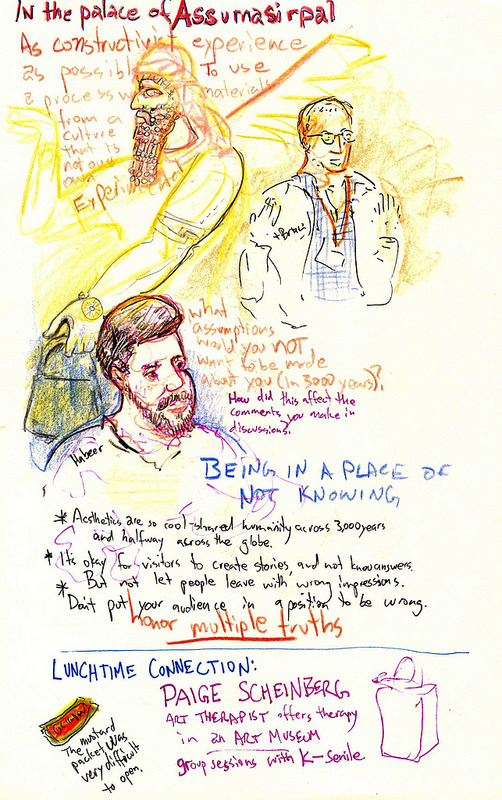 In the palace of Assurnasirpal
As constructivist experience
as possible. To use
a process w materials
from a
culture
that is
not our
own
Experimental
+Brian
what
assumptions
would you NOT
want to be made
about you (in 3000 years)?
How did this affect the
comments you make in
discussions?
Habeer
BEING IN A PLACE OF
NOT KNOWING
* Aesthetics are so cool-shared humanity across 3,000 years
and halfway across the globe.
* It's okay for visitors to create stories, and not know answers.
* But not let people leave with wrong impressions.
Don't put your audience in a position to be wrong.
honor multiple truths
LUNCHTIME CONNECTION:
PAIGE SCHEINBERG
ART THERAPIST offers therapy
in an ART MUSEUM
group sessions with K-Senile
The mustard
packet was
very difficult
to open.